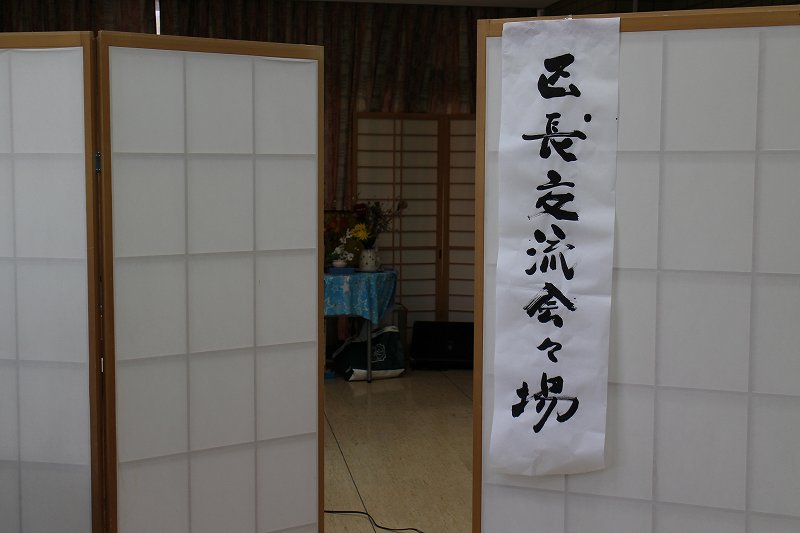 区長交流会々場